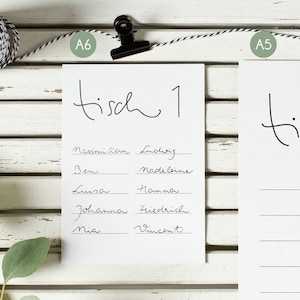 A6
A5
tisch 1
ti
Maximilian Ludwig
Ben Madeleine
Luisa Hanna
Johanna Friedrich
Mia Vincent